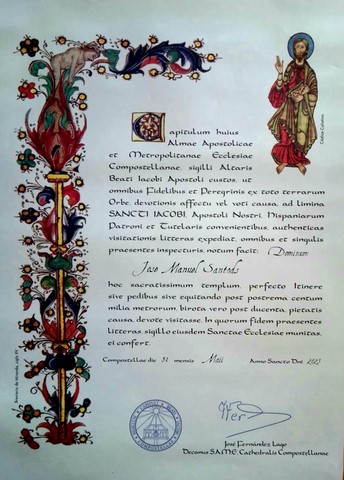 Capitulum huius
Almae Apostolicae
et Metropolitanae Ecclesiae
Compostellanae, sigilli Altaris
Beati Iacobi Apostoli custos, ut
omnibus Fidelibus et Peregrinis ex toto terrarum
Orbe, devotionis affectu vel voti causa, ad limina
SANCTI IACOBI, Apostoli Nostri, Hispaniarum
Patroni et Tutelaris convenientibus, authenticas
visitationis litteras expediat, omnibus et singulis
praesentes inspecturis, notum facit: Dominum
Jose Manuel
hoc sacratissimum templum, perfecto Itinere
sive pedibus sive equitando post postrema centum
milia metrorum, birota vero post ducenta, pietatis
causa, devote visitasse. In quorum fidem praesentes
litteras, sigillo eiusdem Sanctae Ecclesiae munitas,
ei confert.
Compostellae die 31 mensis Maii Anno Sancto Dni
José Fernández Lago
Decanus S.A.M.E. Cathedralis Compostellanae
Breviario de Miranda, siglo XV
Códice Calixtino